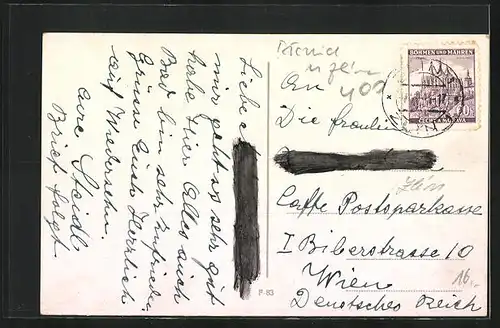 Liebe
mir geht es sehr gut
habe hier Alles auch
Bad bin sehr zufrieden
Grüsse Euch Herzlich
auf Wiedersehn.
eure Steidl
Brief folgt
An
Die fraulein
Caffe Postsparkasse
I Biberstrasse 10
Wien
Deutsches Reich
BÖHMEN UND MÄHREN
ČECHY A MORAVA
P-83
16.-